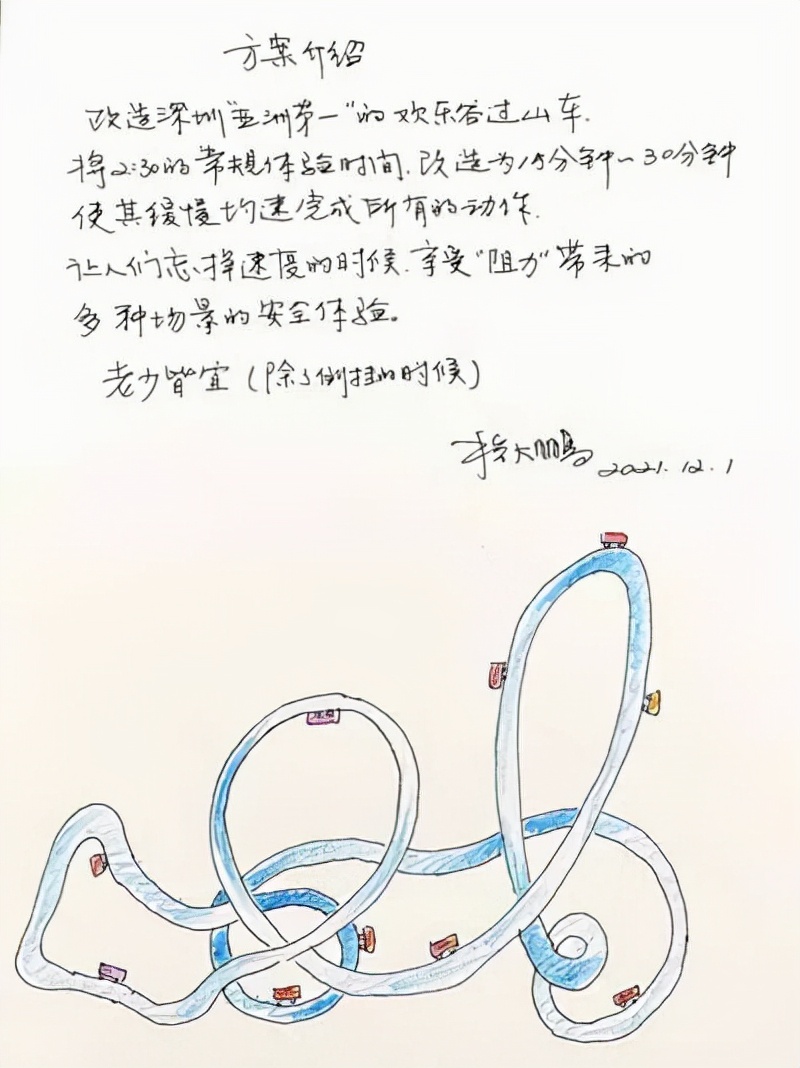 方案介绍
改造深圳"亚洲第一"的欢乐谷过山车.
将2:30的常规体验时间.改造为15分钟~30分钟
使其缓慢均速完成所有的动作.
让人们忘掉速度的时候.享受"阻力"带来的
多种场景的安全体验。
老少皆宜(除了倒挂的时候)
2021.12.1